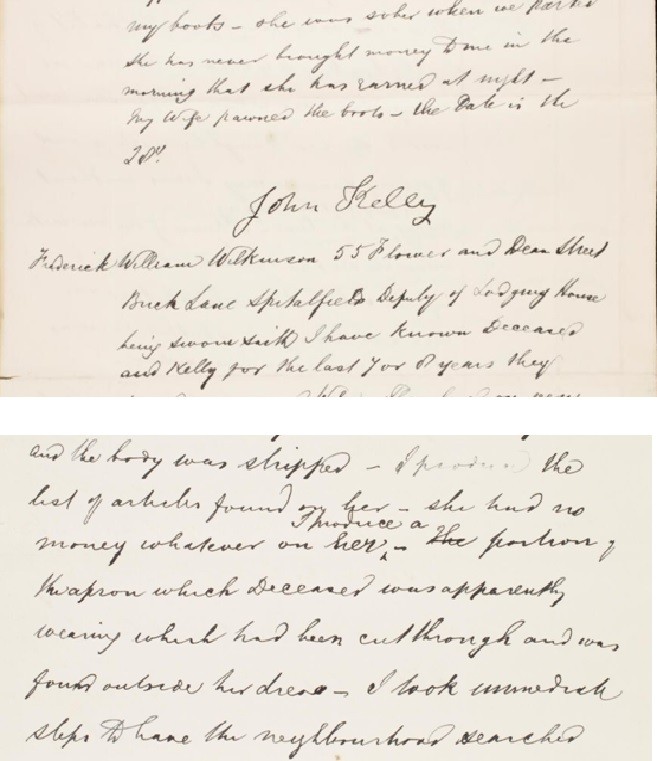 my boots – she was sober when we parted
she has never brought money to me in the
morning that she has earned at night –
My Wife pawned the boots – the Date is the
28th.
John Kelly
Frederick William Wilkinson 55 Flower and Dean Street
Brick Lane Spitalfields Deputy of Lodging House
being sworn saith I have known Deceased
and Kelly for the last 7 or 8 years they
and the body was stripped – I produce the
list of articles found on her – she had no
I produce a
money whatever on her – The portion of
the apron which Deceased was apparently
wearing which had been cut through and was
found outside her dress – I took immediate
steps to have the neighbourhood searched